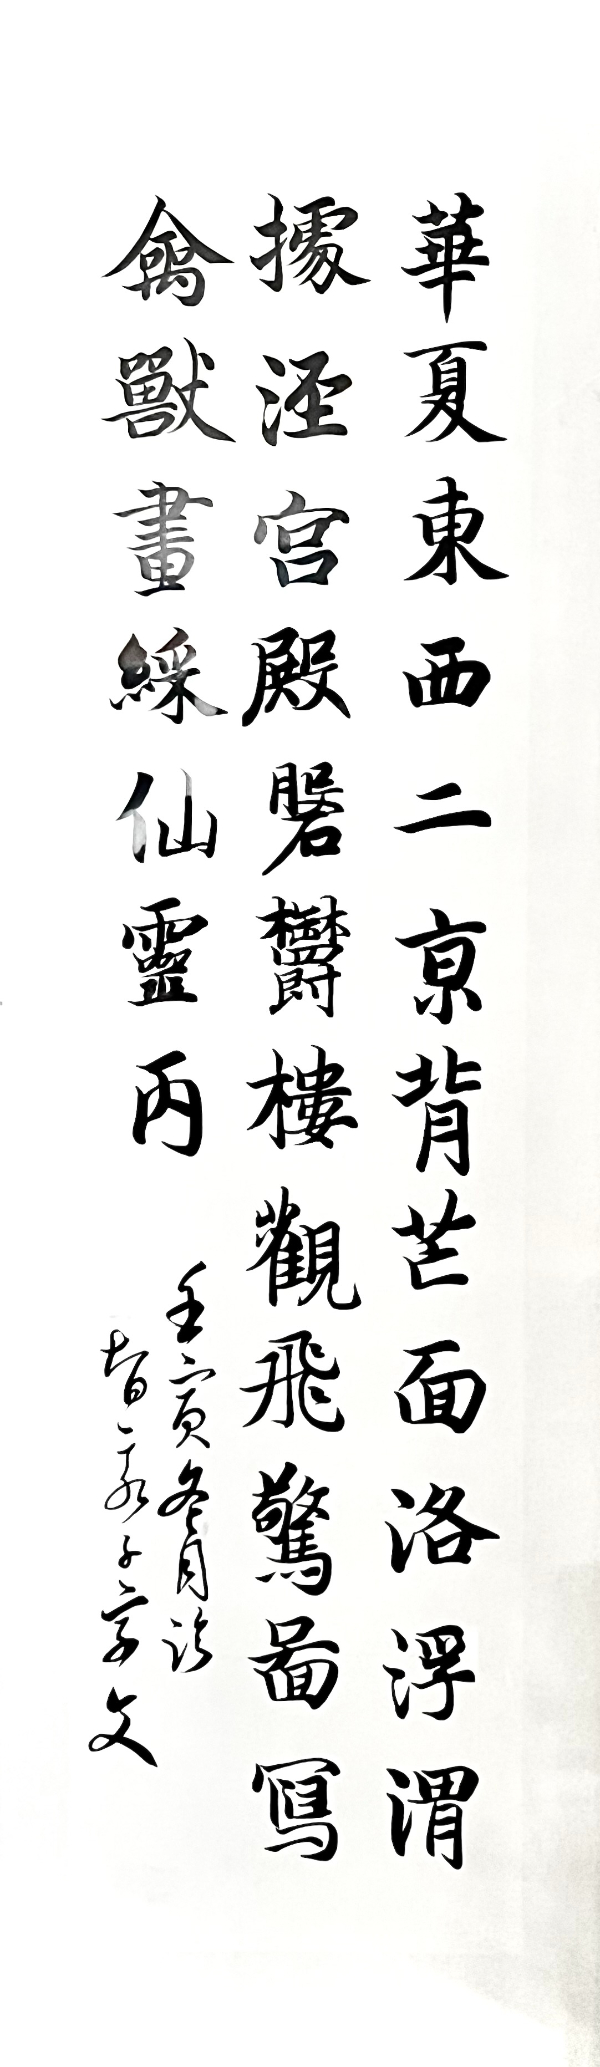 華夏東西二京背芒面洛浮渭
據涇宮殿磐欝樓觀飛驚啚寫
禽獸畫綵仙靈丙
壬寅冬月臨
智永千字文